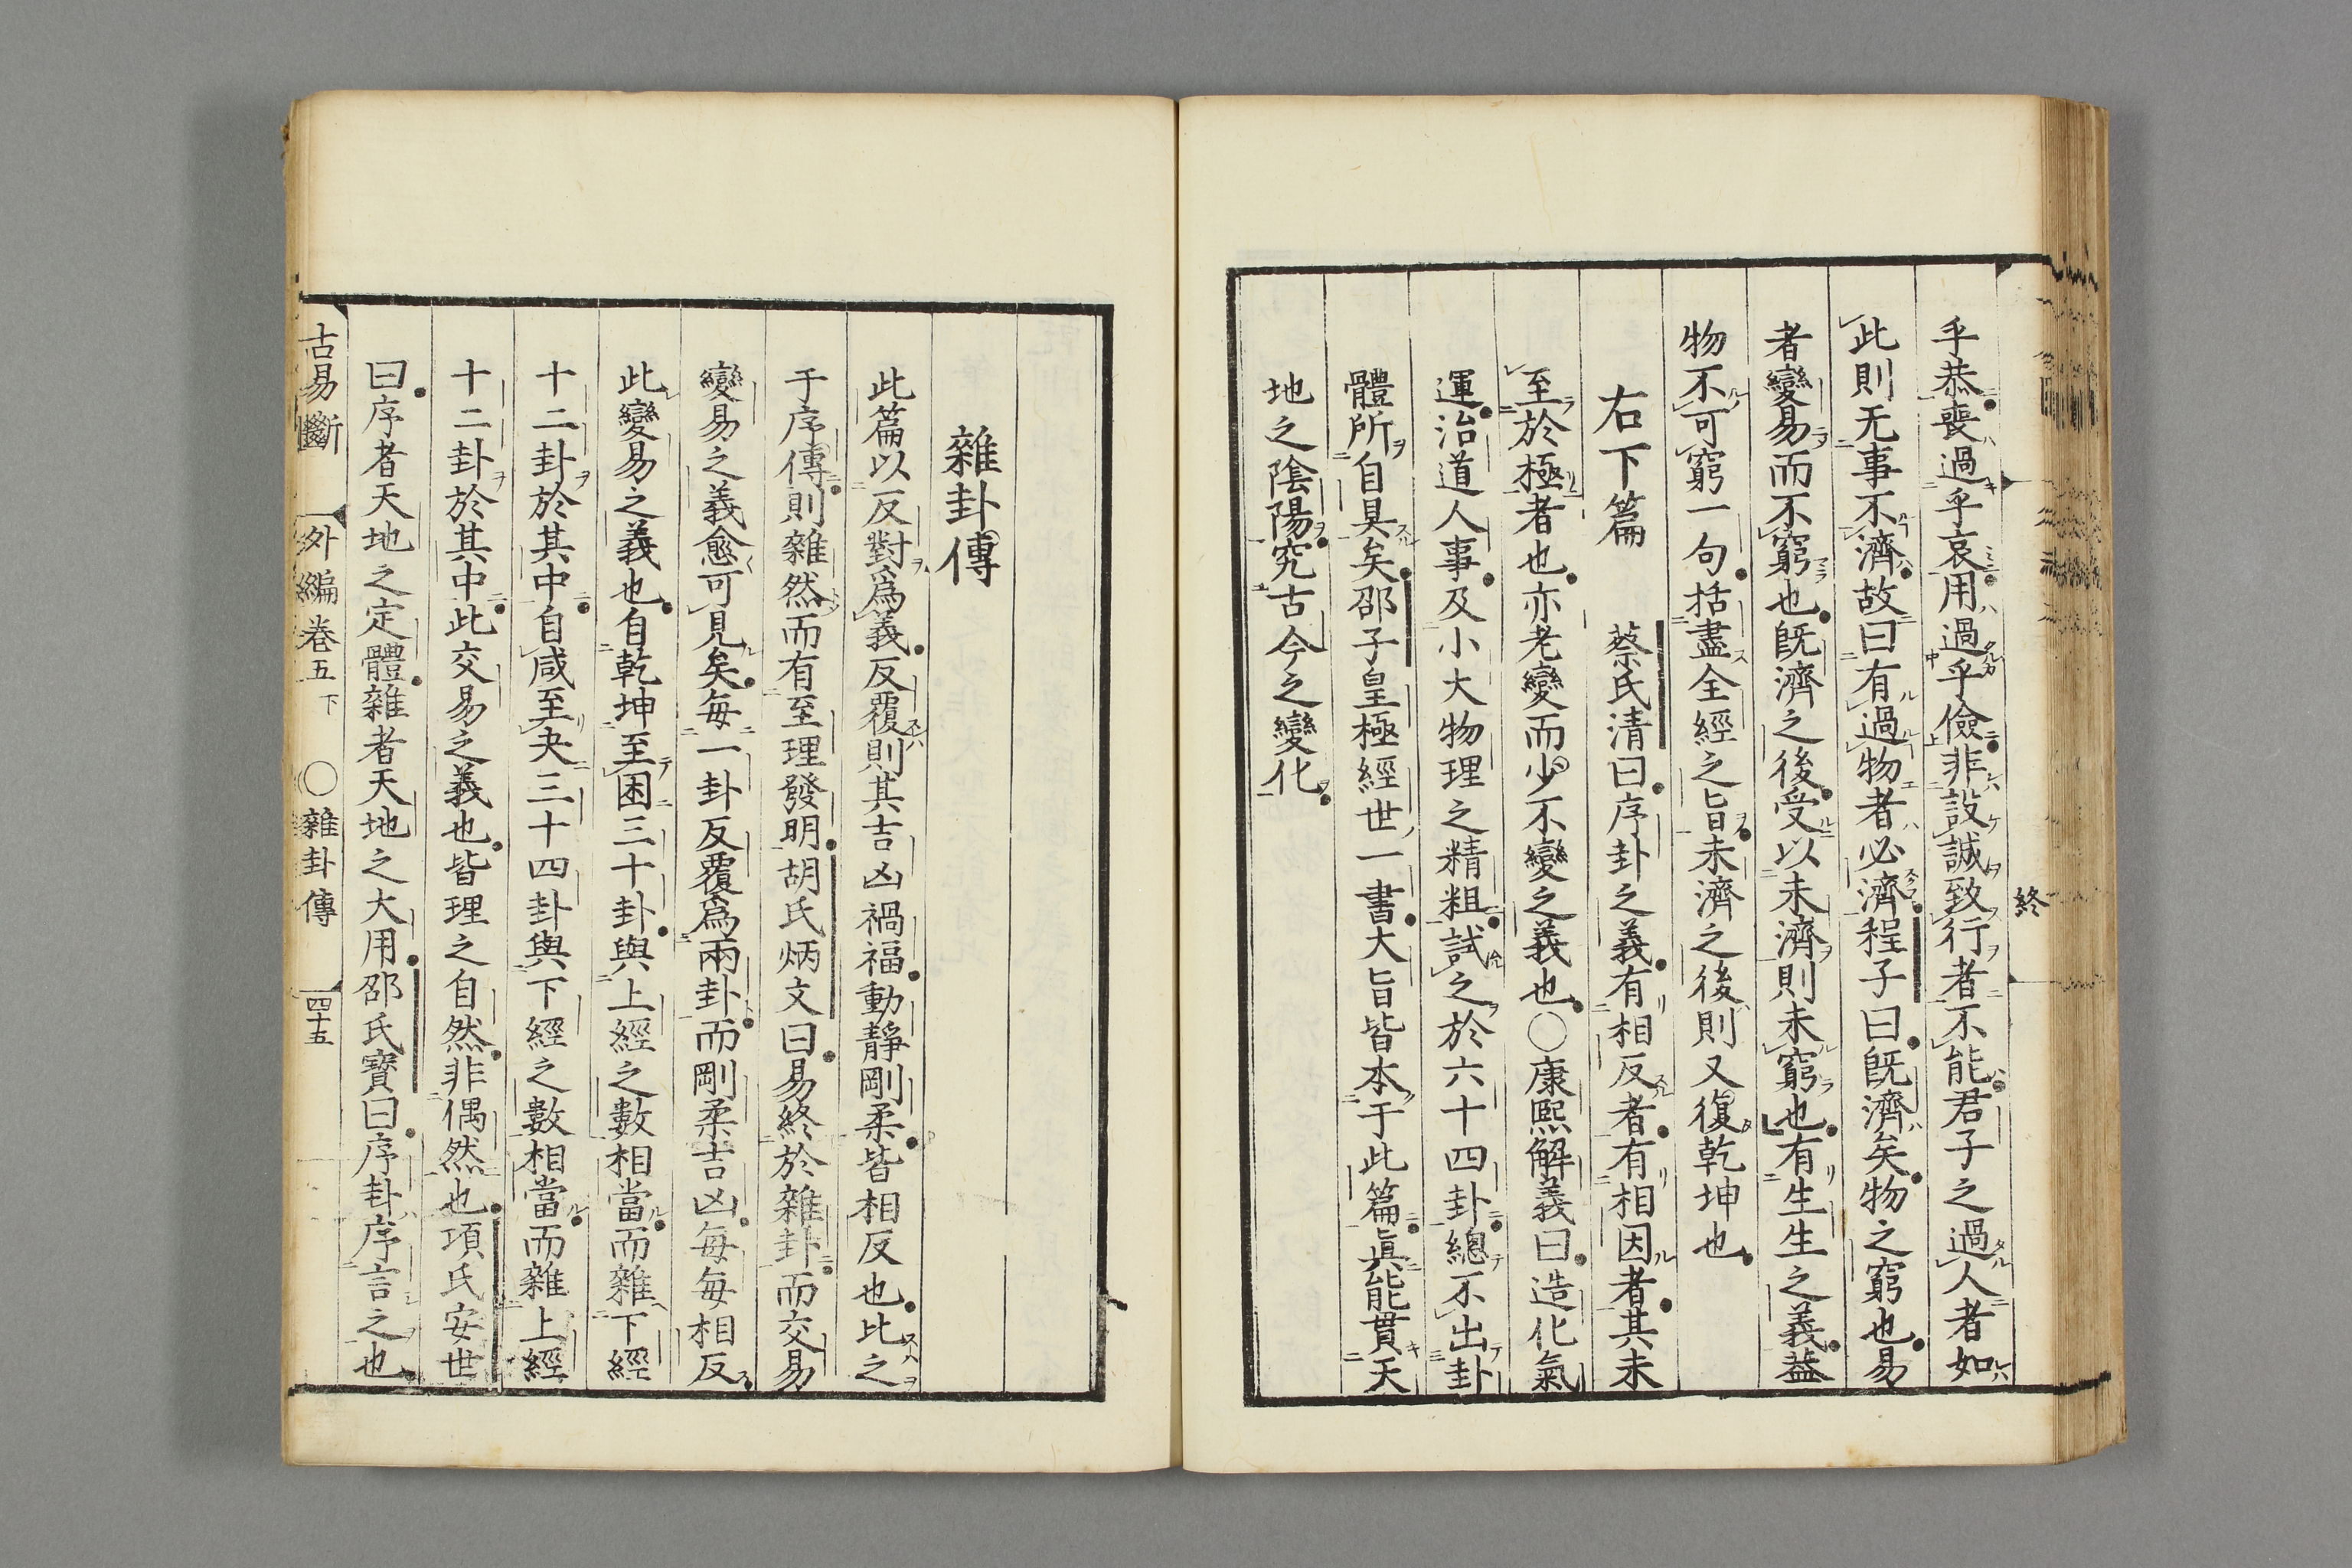 終
乎恭喪過乎哀用過乎儉非設誠致行者不能君子之過人者如
此則无事不濟故曰有過物者必濟程子曰旣濟矣物之窮也易
者變易而不窮也旣濟之後受以未濟則未窮也有生生之義葢
物不可窮一句括盡全經之旨未濟之後則又復乾坤也
右下篇 蔡氏清曰序卦之義有相反者有相因者其未
至於極者也亦老變而少不變之義也〇康熙解義曰造化氣
運治道人事及小大物理之精粗試之於六十四卦總不出卦
體所自具矣邵子皇極經世一書大旨皆本于此篇眞能貫天
地之陰陽究古今之變化
雜卦傳
此篇以反對爲義反覆則其吉凶禍福動靜剛柔皆相反也比之
于序傳則雜然而有至理發明胡氏炳文曰易終於雜卦而交易
變易之義愈可見矣每一卦反覆爲兩卦而剛柔吉凶每每相反
此變易之義也自乾坤至困三十卦與上經之數相當而雜下經
十二卦於其中自咸至夬三十四卦與下經之數相當而雜上經
十二卦於其中此交易之義也皆理之自然非偶然也項氏安世
曰序者天地之定體雜者天地之大用邵氏寶曰序卦序言之也
古易斷 外編卷五下 〇雜卦傳 四十五